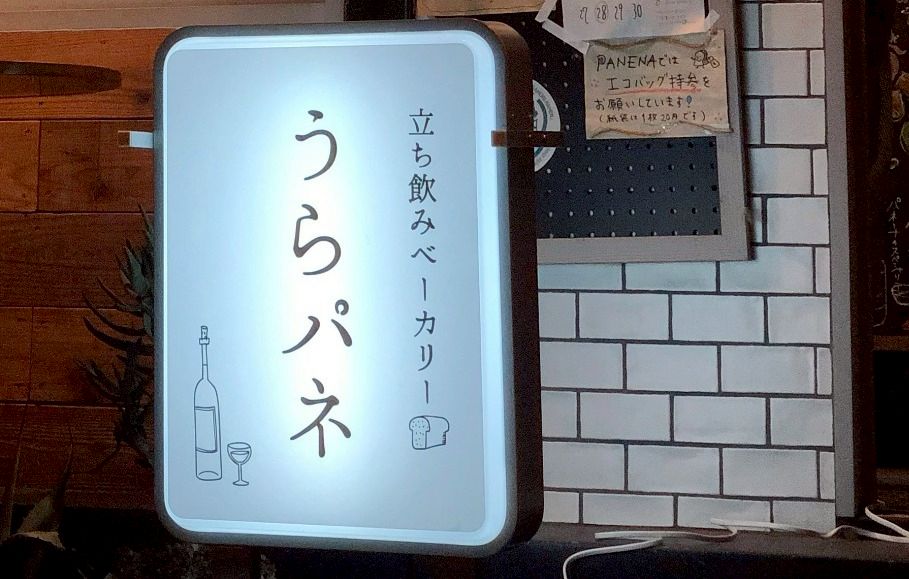 立ち飲みベーカリー
うらパネ
27 28 29 30
PANENAでは
エコバッグ持参を
お願いしています!
(紙袋は1枚20円です)